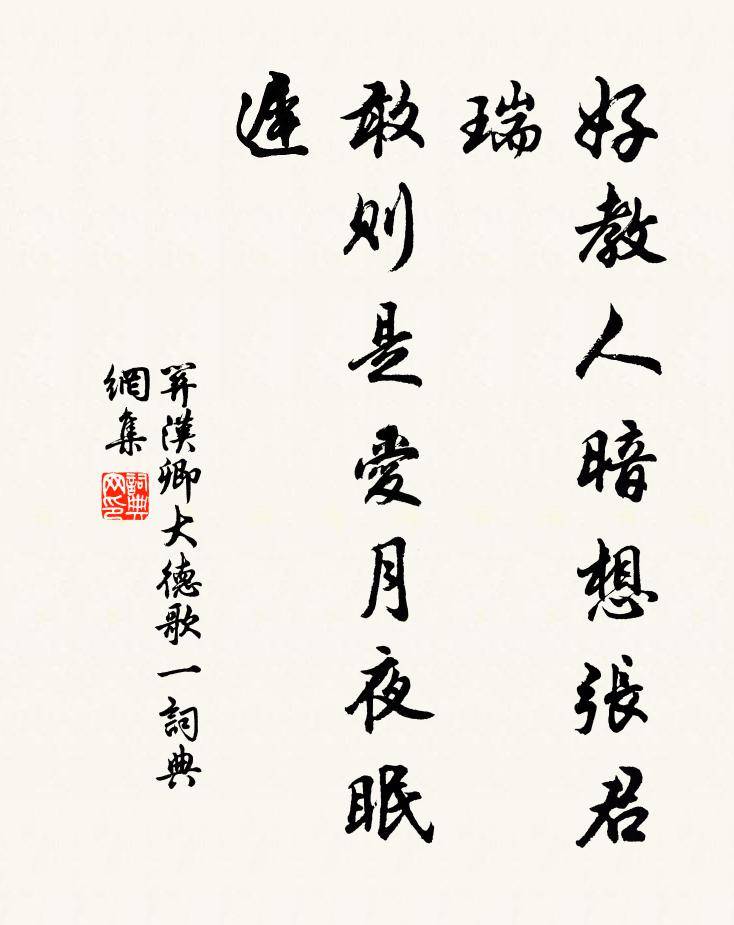 好教人暗想張君
瑞
敢則是愛月夜眠
遲
關漢卿大德歌一詞典
網集
詞典
网印